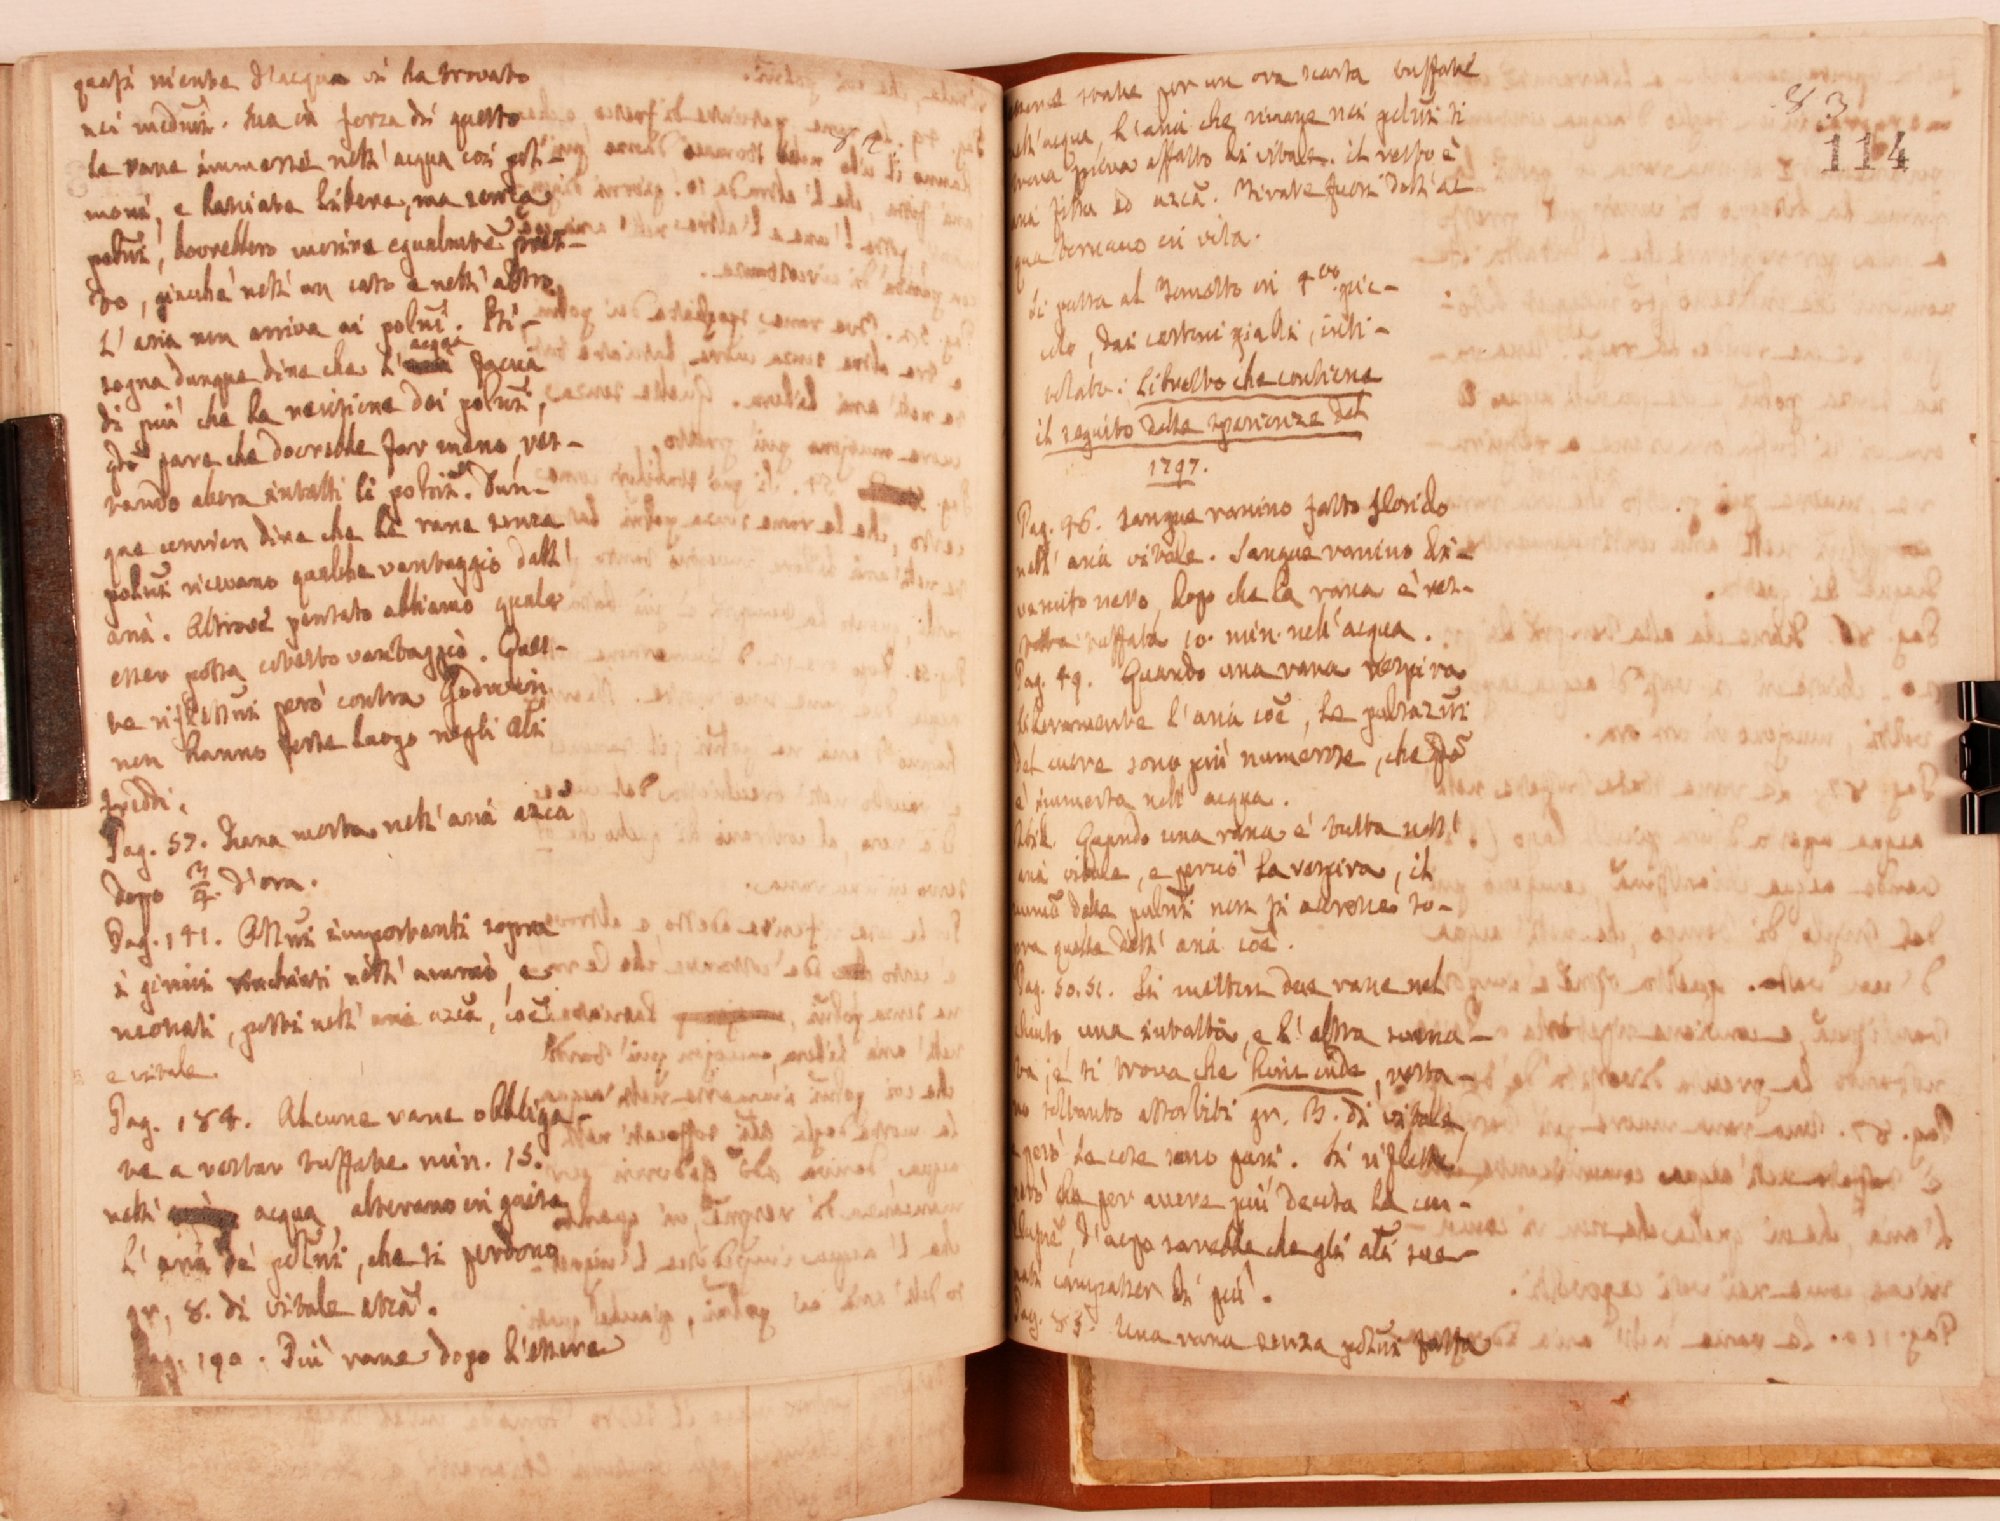 quasi niente d'acqua si ha trovato
nei medmi. Ma in forza di questo
le rane immerse nell' acqua coi pol-
moni, e lasciate libere, ma senza
polmi, dovrebbero morire egualmte pres-
to, giacchè nell' un caso e nell' altro
l' aria non arriva ai polmi. Bi-
sogna dunque dire che l' acqua faccia
di più che la recisione dei polmi,
qto pare che dovrebbe far meno, res-
tando allora intatti li polmi. Dun-
que convien dire che le rane senza
polmi ricevano qualche vantaggio dall'
aria. Altrove pensato abbiamo quale
esser possa cotesto vantaggio. Ques-
te riflessni però contra Godwin
non hanno forse luogo negli ali
freddi.
Pag. 57. Rana morta nell' aria azca
dopo 3/4 d'ora.
Pag. 141. Ossni importanti sopra
i girini rinchiusi nell' amnio, e
neonati, posti nell' aria azca, coe
e vitale.
Pag. 184. Alcune rane obbliga-
te a restar tuffate min. 15.
nell' acqua, alterano in guisa
l' aria de' polmi, che si perdono
gr. 8. di vitale atca.
Pag. 190. Più rane dopo l'essere
82
83
114
state per un ora scarsa tuffate
nell' acqua, l'aria che rimane nei polmi si
trova priva affatto di vitale. il resto è
aria fissa ed azca. Tirate fuori dall' ac
qua tornano in vita.
Si passa al tometto in 4to pic-
colo, dai cartoni gialli, inti-
tolato: Libretto che contiene
il seguito delle sperienze del
1797.
Pag. 46. Sangue ranino fatto florido
nell' aria vitale. Sangue ranino di-
venuto nero, dopo che la rana è res-
tata tuffata 10. min. nell' acqua.
Pag. 49. Quando una rana respira
liberamente l' aria coe, le pulsazni
del cuore sono più numerose, che qdo
è immersa nell' acqua.
Ibid. Quando una rana è tutta nell'
aria vitale, e perciò la respira, il
numo delle pulsni non si accresce so-
pra quelle dell' aria coe.
Pag. 50.51. Si metton due rane nel
chiuso una intatta, e l' altra svena-
ta, e si trova che hinc inde, resta-
no soltanto assorbiti gr. 13. di vitale,
e però le cose sono pari. Si riflette
però che per avere più decisa la con-
clusne, d' uopo sarebbe che gli ali sve-
nati campasser di più.
Pag. 85. Una rana senza polmi fatta